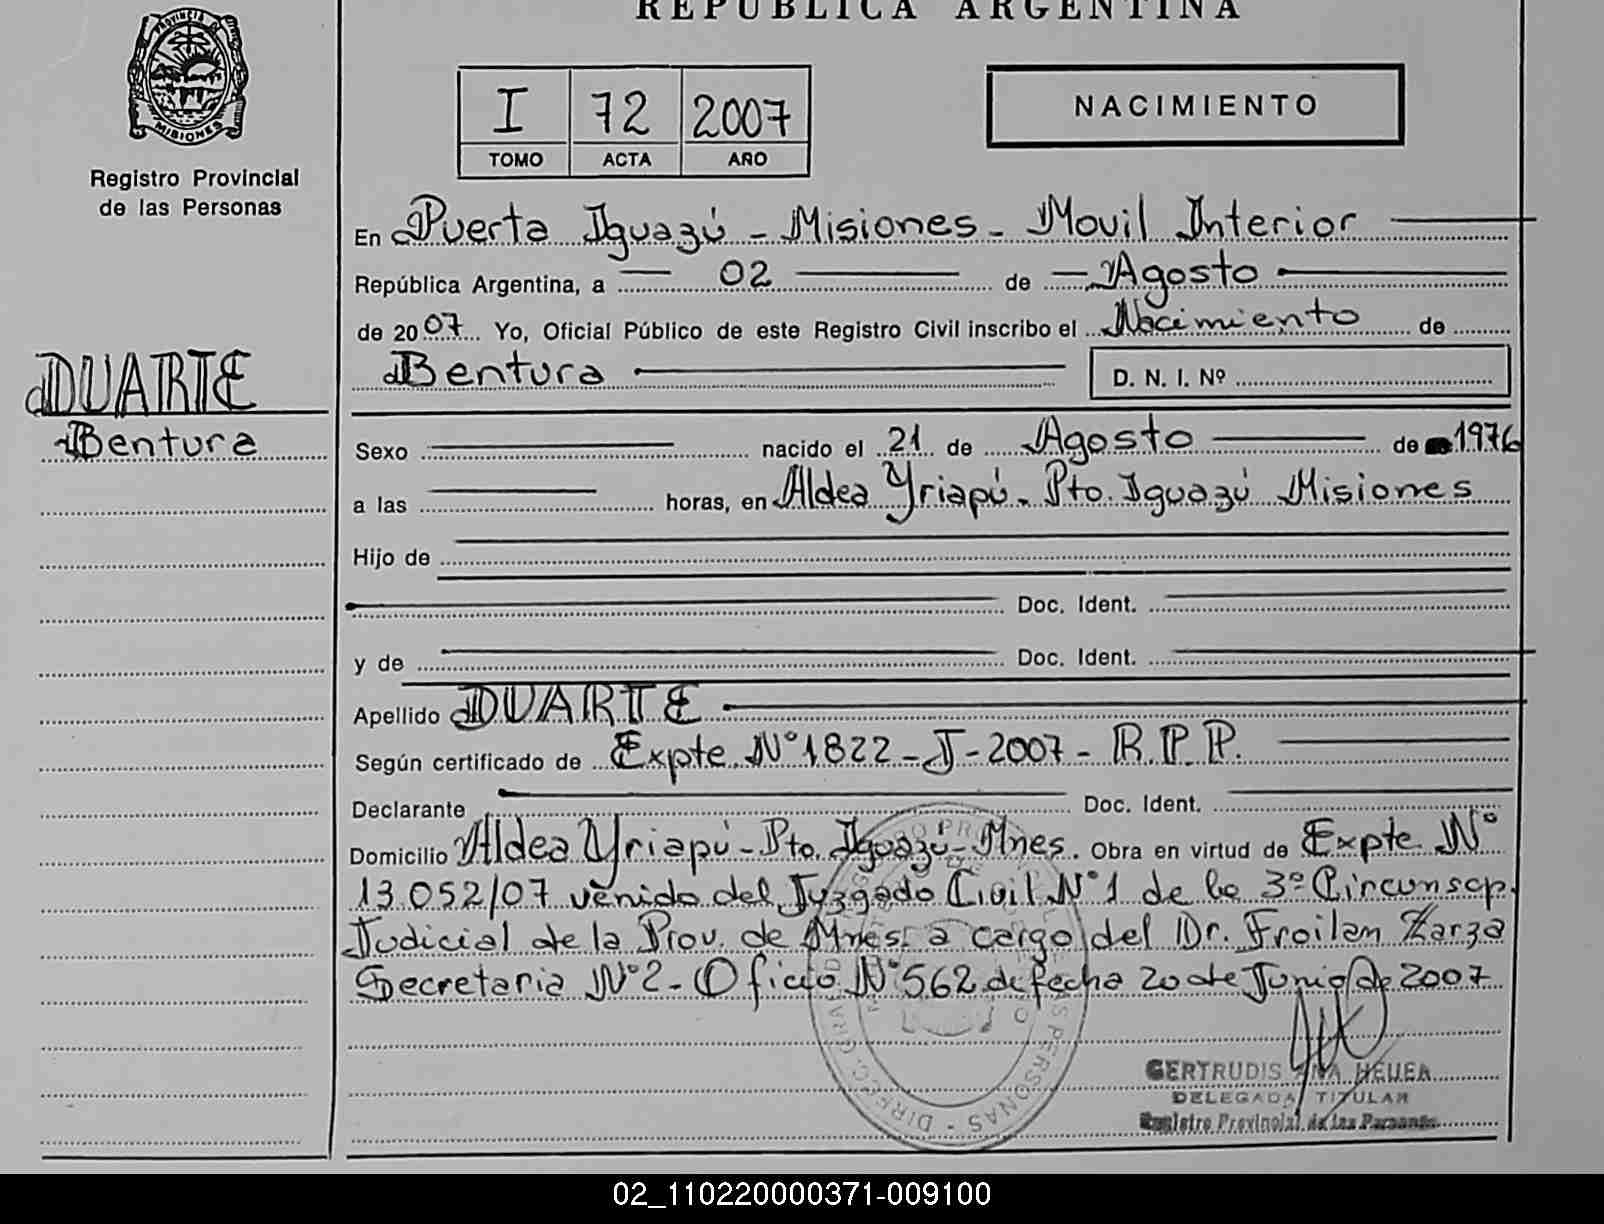 REPUBLICA ARGENTINA
PROVINCIA DE
MISIONES
Registro Provincial
de las Personas
I 72 2007
TOMO ACTA AÑO
NACIMIENTO
En Puerto Iguazú - Misiones - Movil Interior
República Argentina, a 02 de Agosto
de 2007. Yo, Oficial Público de este Registro Civil inscribo el Nacimiento de
Bentura D. N. I. Nº
DUARTE
Bentura
Sexo nacido el 21 de Agosto de 1976
a las horas, en Aldea Yriapú - Pto. Iguazú Misiones
Hijo de
Doc. Ident.
y de Doc. Ident.
Apellido DUARTE
Según certificado de Expte. N° 1822 - J - 2007 - R.P.P.
Declarante Doc. Ident.
Domicilio Aldea Yriapú - Pto. Iguazú - Mnes. Obra en virtud de Expte N°
13.052/07 venido del Juzgado Civil N°1 de la 3º Circunscp.
Judicial de la Prov. de Mnes. a cargo del Dr. Froilan Zarza
Secretaria N°2 - Oficio N°562 de fecha 20 de Junio de 2007
GERTRUDIS ANA
DELEGADA TITULAR
Registro Provincial de las Personas
PERSONAS - DIRECC. GRAL.
02_110220000371-009100